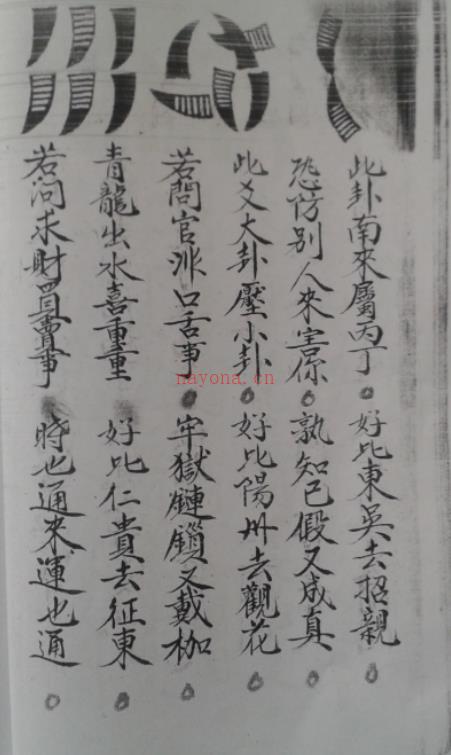 此卦南來屬丙丁。好比東吳去招親。
恐防別人來害你。孰知已假又成真。
此爻大卦壓小卦。好比陽州去觀花。
若問官非口舌事。牢獄鏈鎖又戴枷。
青龍出水喜重重 好比仁貴去征東。
若问求財買賣事 時也通來運也通。
nayona.cn